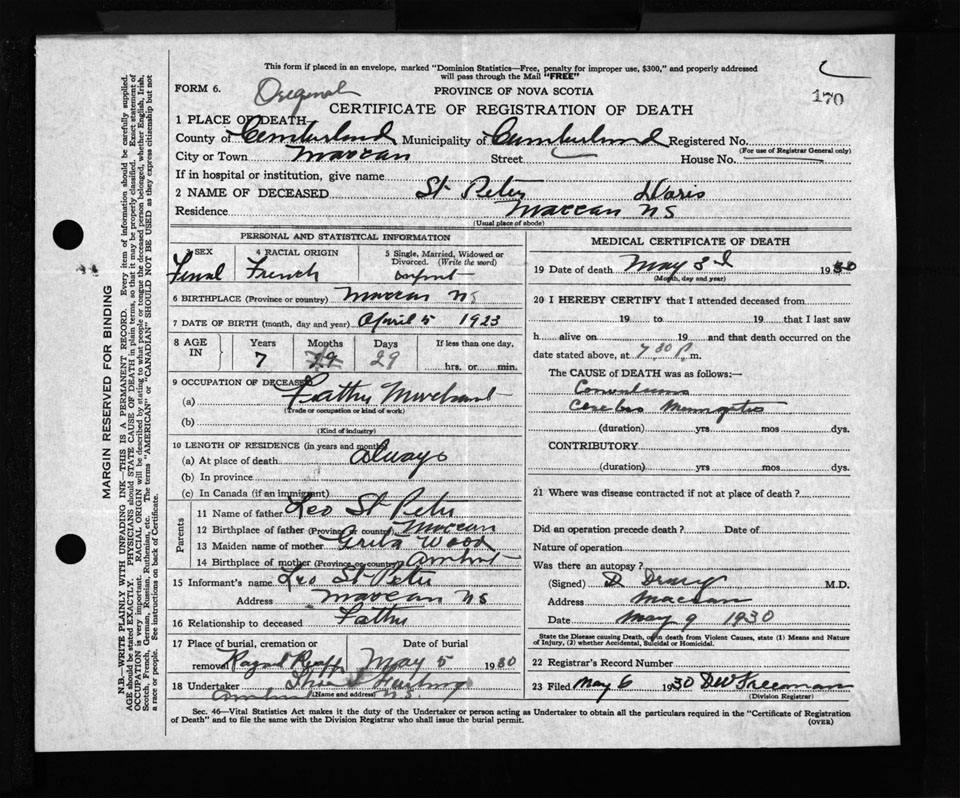 This if placed in an envelope, marked "Dominion Statistics—Free, penalty for improper use, $300," and properly addressed
will pass through the Mail "FREE"
170
FORM 6. Original PROVINCE OF NOVA SCOTIA
CERTIFICATE OF REGISTRATION OF DEATH
1 PLACE OF DEATH
County of Cumberland Municipality of Cumberland Registered No.
(For use of Registrar General only)
City or Town Maccan Street House No.
If in hospital or institution, give name
2 NAME OF DECEASED St Peter Doris
Residence Maccan NS
(Usual place of abode)
PERSONAL AND STATISTICAL INFORMATION
3 SEX 4 RACIAL ORIGIN 5 Single, Married, Widowed or
Divorced. (Write the word)
Femal French
6 BIRTHPLACE (Province or country) Maccan NS
7 DATE OF BIRTH (month, day and year) April 5 1923
8 AGE IN Years Months Days If less than one day,
7 29 hrs. or min.
9 OCCUPATION OF DECEASED
(a) Father Merchant
(Trade or occupation or kind of work)
(b)
(Kind of industry)
10 LENGTH OF RESIDENCE (in years and months)
(a) At place of death Always
(b) In province
(c) In Canada (if an immigrant)
Parents
11 Name of father Leo St Peter
12 Birthplace of father (Province or country) Maccan
13 Maiden name of mother Greta Wood
14 Birthplace of mother (Province or country) Amherst
15 Informant's name Leo St Peter
Address Maccan NS
16 Relationship to deceased Father
17 Place of burial, cremation or Date of burial
removal May 5 1930
18 Undertaker
(Name and address) NS
MEDICAL CERTIFICATE OF DEATH
19 Date of death May 3d 1930
(Month, day and year)
20 I HEREBY CERTIFY that I attended deceased from
19 to 19 that I last saw
h alive on 19 and that death occurred on the
date stated above, at 7 30 P. m.
The CAUSE of DEATH was as follows:—
Convulsions
Cerebro Meningitis
(duration) yrs mos dys.
CONTRIBUTORY
(duration) yrs mos dys.
21 Where was disease contracted if not at place of death?
Did an operation precede death? Date of
Nature of operation
Was there an autopsy?
(Signed) D. M.D.
Address Maccan
Date May 9 1930
State the Disease causing Death, or in death from Violent Causes, state (1) Means and Nature
of Injury, (2) whether Accidental, Suicidal or Homicidal.
22 Registrar's Record Number
23 Filed May 6 1930 DW Freeman
(Division Registrar)
Sec. 46—Vital Statistics Act makes it the duty of the Undertaker or person acting as Undertaker to obtain all the particulars required in the "Certificate of Registration
of Death" and to file the same with the Division Registrar who shall issue the burial permit.
(OVER)
MARGIN RESERVED FOR BINDING
N.B.—WRITE PLAINLY WITH UNFADING INK—THIS IS A PERMANENT RECORD. Every item of information should be carefully supplied.
AGE should be stated EXACTLY. PHYSICIANS should STATE CAUSE OF DEATH in plain terms, so that it may be properly classified. Exact statement of
OCCUPATION is very important. RACIAL ORIGIN will be described by stating to what people or tongue the deceased person belonged, whether English, Irish,
Scotch, French, German, Russian, Ruthenian, etc. The terms "AMERICAN" or "CANADIAN" SHOULD NOT BE USED as they express citizenship but not
a race or people. See instructions on back of Certificate.